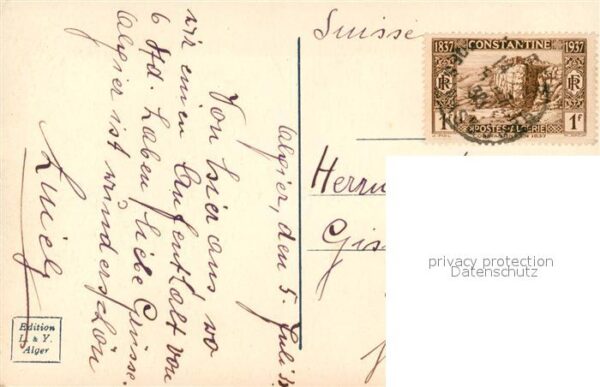 Suisse
1837 CONSTANTINE 1937
RF RF
1F POSTES-ALGÉRIE 1F
Algier, den 5. Juli
Von hier aus wo
wir einen Aufenthalt von
6 Std. haben liebe Grüsse.
Algier ist wunderschön
Herrn
Edition
L. & Y.
Alger
privacy protection
Datenschutz